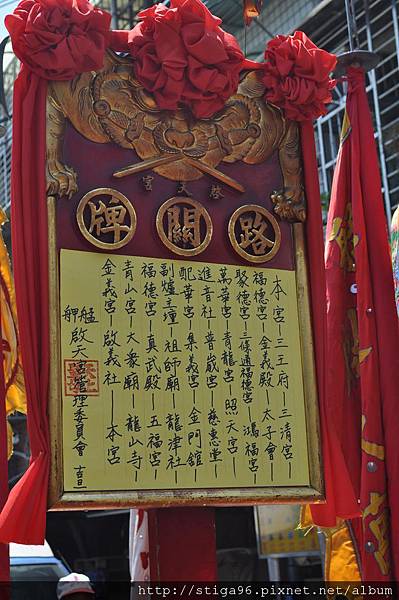 啓天宮
路關牌
本宮－三王府－三清宮－
福德宮－金義殿－太子會－
聚德宮－三條通福德宮－鴻福宮－
萬華宮－青龍宮－照天宮－
進音社－普巌宮－慈惠堂－
配華宮－集義宮－金門舘－
副爐主壇－祖師廟－龍津社－
福德宮－真武殿－五福宮－
青山宮－大衆廟－龍山寺－
金義宮－啟義社－本宮
艋舺啟天宮管理委員會 吉旦
http://stiga96.pixnet.net/album